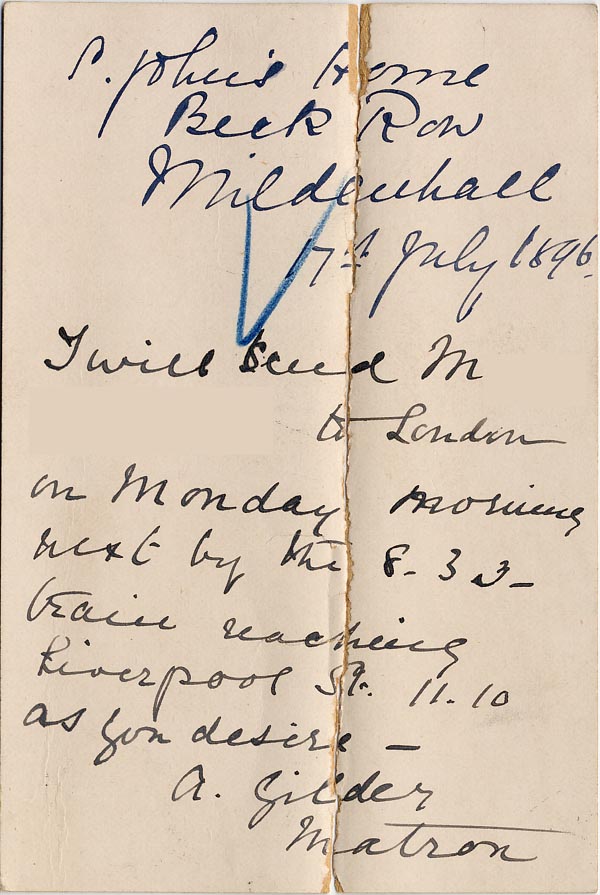 S. John's Home
Beck Row
Mildenhall
17th July 1896.
I will send M
to London
on Monday morning
next by the 8-33-
train reaching
Liverpool St. 11.10
as you desire -
A. Gilder
Matron